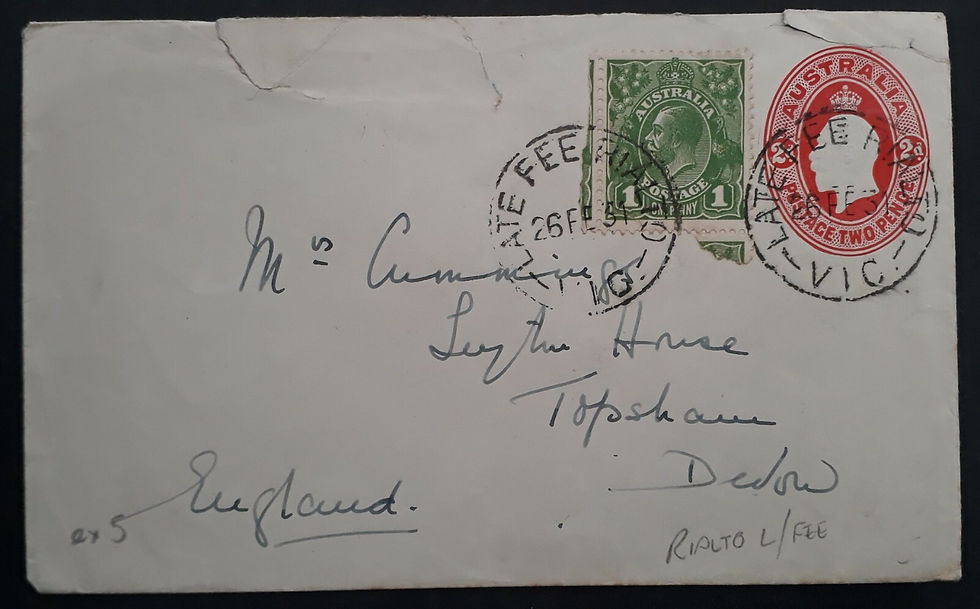 AUSTRALIA
1 POSTAGE 1
PENNY
AUSTRALIA
2d 2d
POSTAGE TWO PENCE
LATE FEE RIALTO
26 FE 31
VIC
LATE FEE RIALTO
26 FE 31
VIC
Mrs Cummings
House
Topsham
Devon
England.
ex 5
RIALTO L/FEE